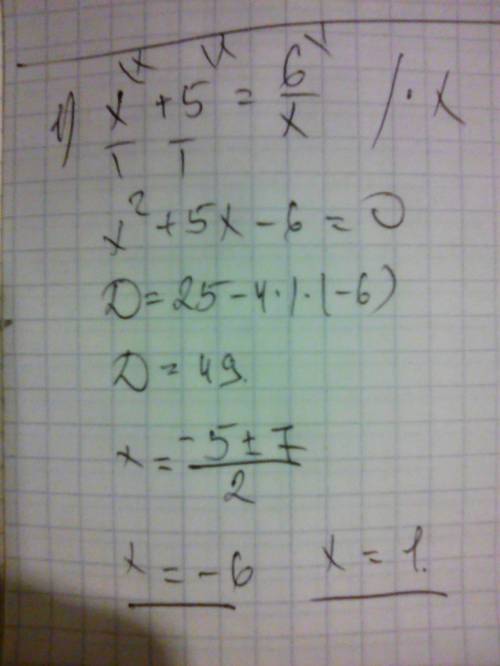 1) x/1 \x + 5/1 \x = 6/x \1 / · x
x² + 5x - 6 = 0
D = 25 - 4 · 1 · (-6)
D = 49.
x = (-5 ± 7)/2
x = -6 x = 1.